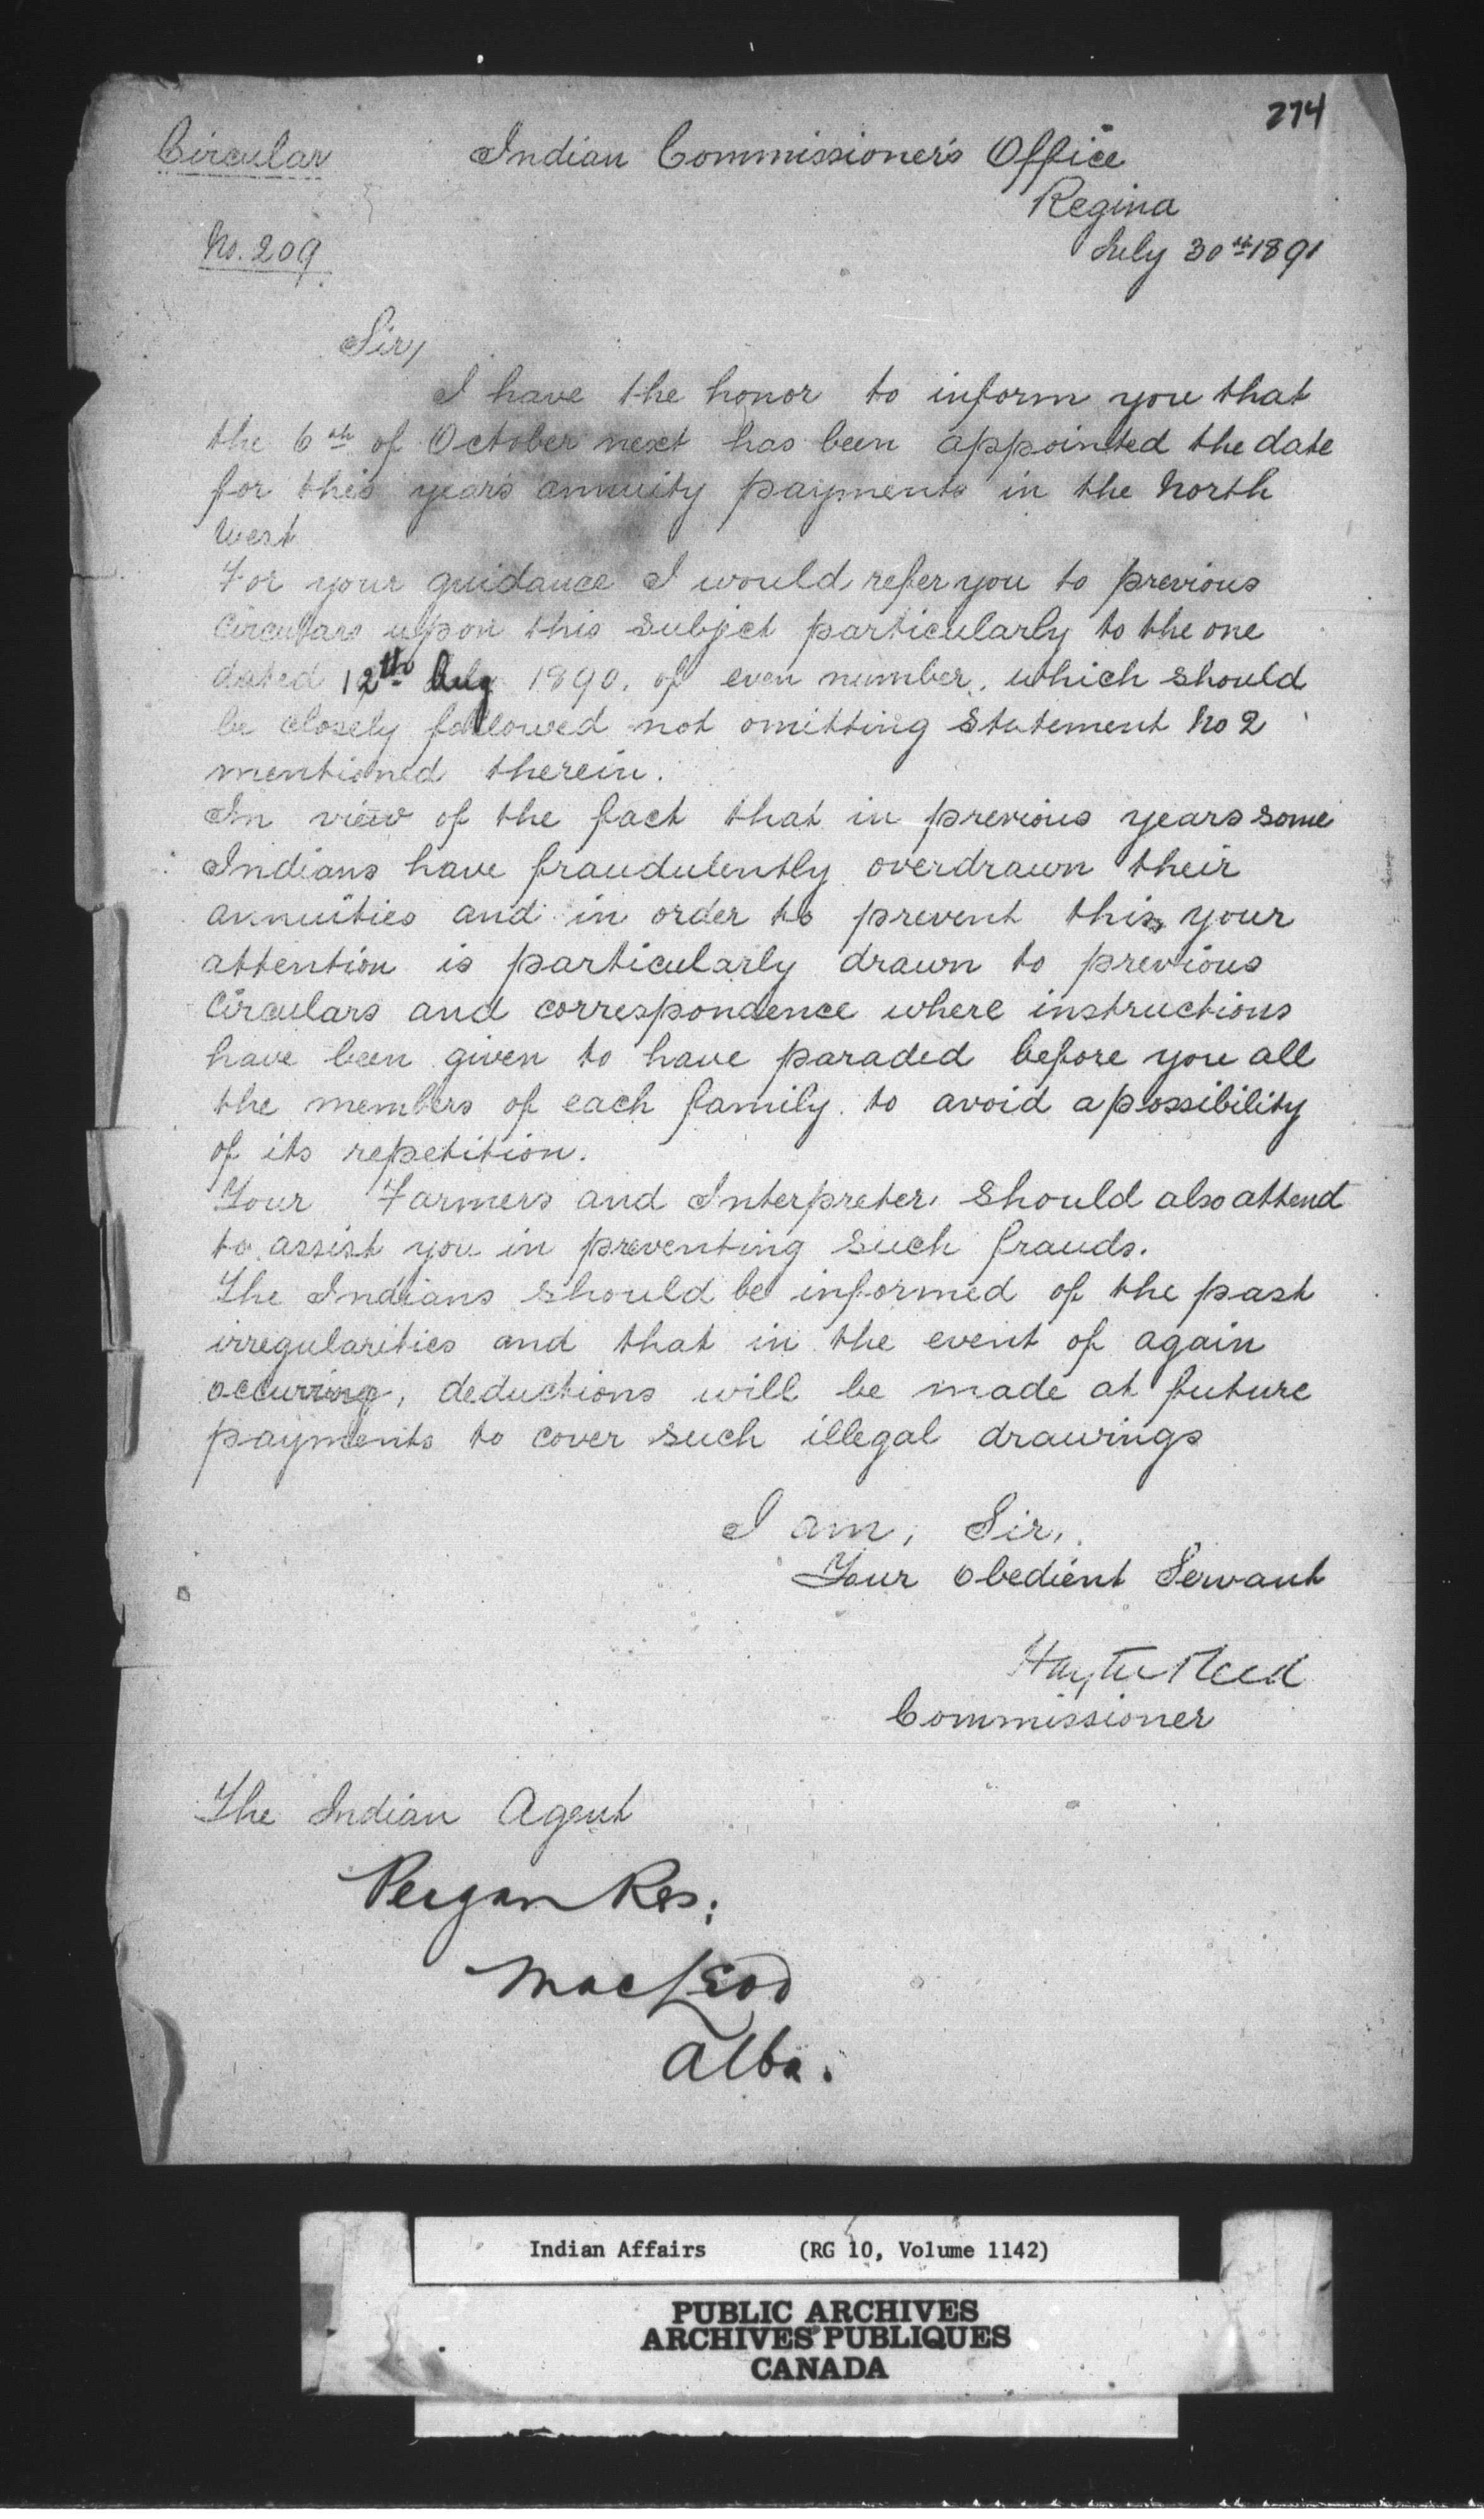 274
Circular Indian Commissioner's Office
Regina
No. 209 July 30th 1891
Sir,
I have the honor to inform you that
the 6th of October next has been appointed the date
for this year's annuity payments in the North
West
For your guidance I would refer you to previous
Circulars upon this subject particularly to the one
dated 12th Aug 1890. of even number, which should
be closely followed not omitting Statement No 2
mentioned therein.
In view of the fact that in previous years some
Indians have fraudulently overdrawn their
annuities and in order to prevent this, your
attention is particularly drawn to previous
Circulars and correspondence where instructions
have been given to have paraded before you all
the members of each family. to avoid a possibility
of its repetition.
Your Farmers and Interpreter, should also attend
to assist you in preventing such frauds.
The Indians should be informed of the past
irregularities and that in the event of again
occurring, deductions will be made at future
payments to cover such illegal drawings
I am, Sir,
Your Obedient Servant
Hayter Reed
Commissioner
The Indian Agent
Peigan Res:
MacLeod
Alba.
Indian Affairs (RG 10, Volume 1142)
PUBLIC ARCHIVES
ARCHIVES PUBLIQUES
CANADA